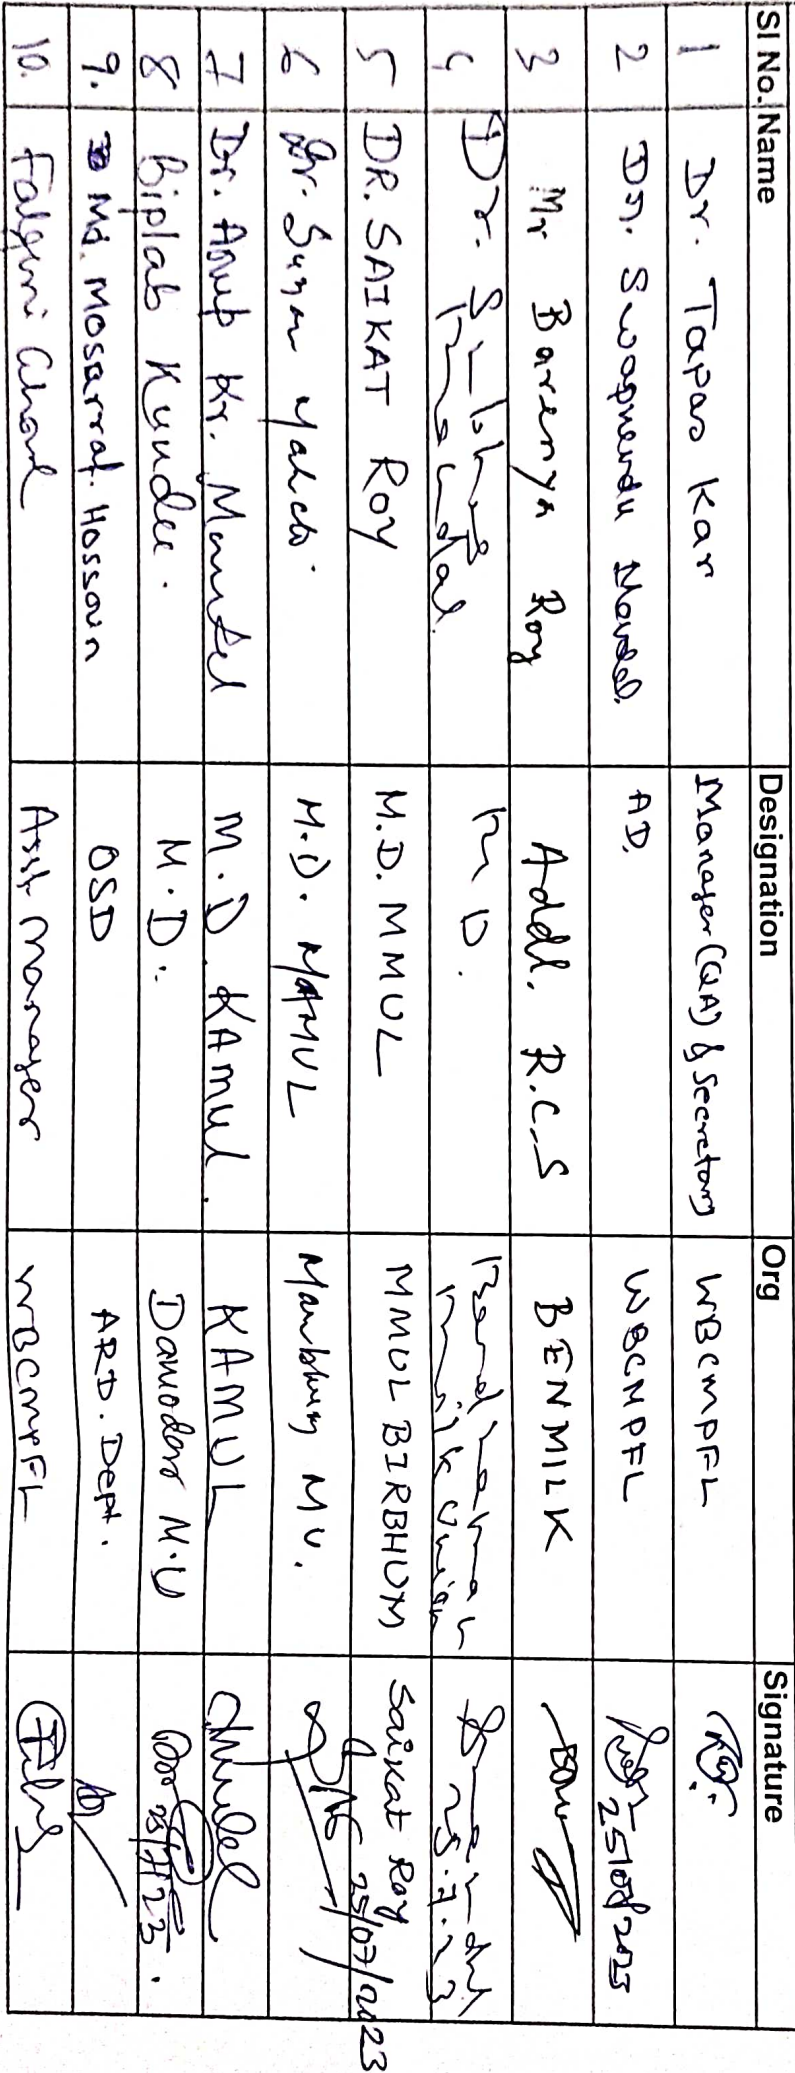 Sl No. Name Designation Org Signature
1 Dr. Tapas Kar Manager (QA) & Secretary WBCMPFL
2 Dr. Swapnendu Mondal. AD. WBCMPFL 25/07/2023
3 Mr Barenya Roy Addl. R.C.S BENMILK
4 Dr. M D. Milk Union 25.7.23
5 DR. SAIKAT ROY M.D. MMUL MMUL BIRBHUM Saikat Roy 25/07/2023
6 Dr. M.D. MAMUL Manbhum MU.
7 Dr. Anup Kr. M.D. KAMUL. KAMUL
8 Biplab Kundu. M.D. Damodar M.U 25/7/23.
9. Md. Mosarraf Hossain OSD ARD. Dept.
10. Falguni Asst Manager WBCMPFL